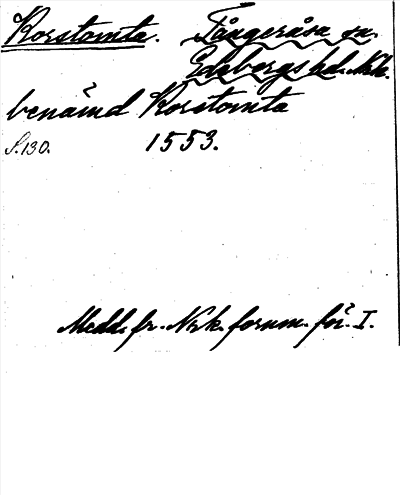 Korstomta. Tångeråsa sn.
Edsbergs hd. Nrk.
benämd Korstomta
S.130. 1553.
Medd. fr. Nrk. fornm. för. I.